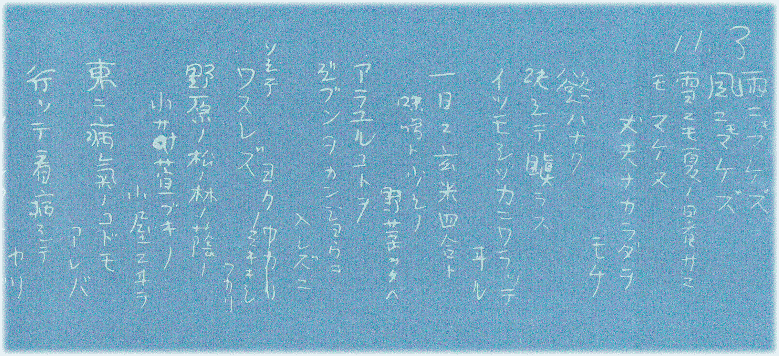 11.3
雨ニモマケズ
風ニモマケズ
雪ニモ夏ノ暑サニ
モマケヌ
丈夫ナカラダヲ
モチ
慾ハナク
決シテ瞋ラズ
イツモシヅカニワラッテ
ヰル
一日ニ玄米四合ト
味噌ト少シノ
野菜ヲタベ
アラユルコトヲ
ジブンヲカンジョウニ
入レズニ
ヨクミキキシワカリ
ソシテ
ワスレズ
野原ノ松ノ林ノ蔭ノ
小サナ萓ブキノ
小屋ニヰテ
東ニ病気ノコドモ
アレバ
行ッテ看病シテ
ヤリ